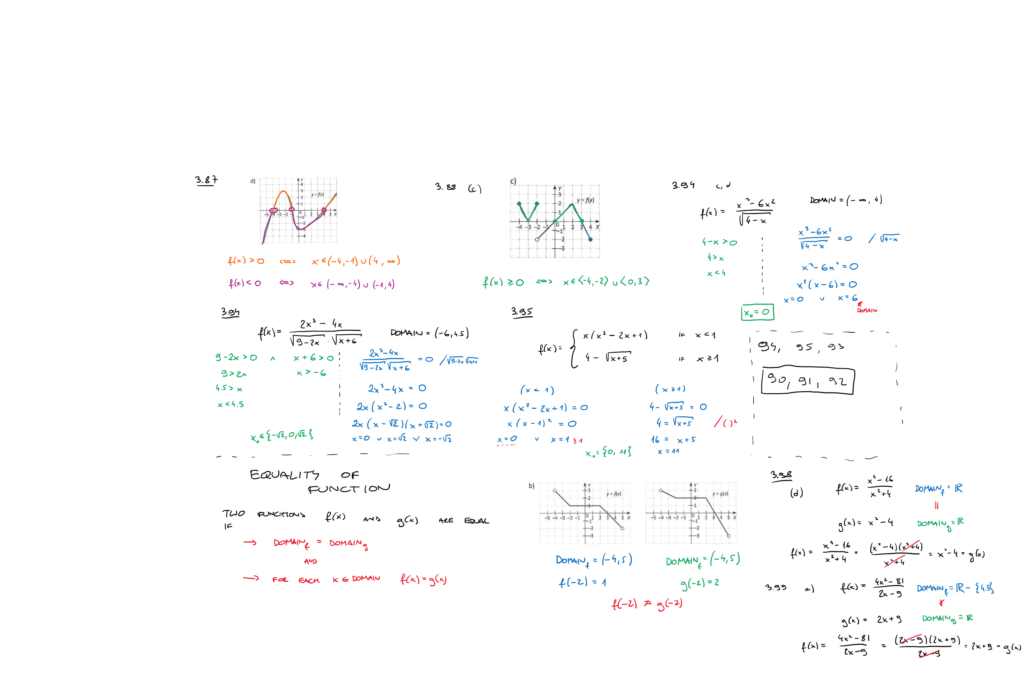 3.87
a)
y=f(x)
f(x)>0 ⟺ x∈(-4,-1)∪(4,∞)
f(x)<0 ⟺ x∈(-∞,-4)∪(-1,4)
3.88 (c)
c)
y=f(x)
f(x)≥0 ⟺ x∈<-4,-2)∪<0,3>
3.94 c,d
f(x)= (x³-6x²)/√(4-x) DOMAIN=(-∞,4)
4-x>0
4>x
x<4
(x³-6x²)/√(4-x) =0 /√(4-x)
x³-6x²=0
x²(x-6)=0
x=0 ∪ x=6
DOMAIN
x₀=0
3.94
f(x)= (2x³-4x)/(√(9-2x)·√(x+6)) DOMAIN=(-6,4.5)
9-2x>0 ∧ x+6>0
9>2x x>-6
4.5>x
x<4.5
(2x³-4x)/(√(9-2x)√(x+6)) =0 /√(9-2x)√(x+6)
2x³-4x=0
2x(x²-2)=0
2x(x-√2)(x+√2)=0
x=0 ∪ x=√2 ∨ x=-√2
x₀∈{-√2,0,√2}
3.95
f(x)= { x(x²-2x+1) IF x<1
4-√(x+5) IF x≥1
(x<1)
x(x²-2x+1)=0
x(x-1)²=0
x=0 ∪ x=1 ≥1
(x≥1)
4-√(x+5)=0
4=√(x+5) /()²
16=x+5
x=11
x₀={0,11}
94, 95, 93
90, 91, 92
EQUALITY OF
FUNCTION
TWO FUNCTIONS f(x) AND g(x) ARE EQUAL
IF
→ DOMAIN_f = DOMAIN_g
AND
→ FOR EACH X∈DOMAIN f(x)=g(x)
b)
y=f(x)
y=g(x)
DOMAIN_f=(-4,5) DOMAIN_f=(-4,5)
f(-2)=1 g(-2)=2
f(-2)≠g(-2)
3.98
(d) f(x)= (x⁴-16)/(x²+4) DOMAIN_f=ℝ
=
g(x)=x²-4 DOMAIN_g=ℝ
f(x)= (x⁴-16)/(x²+4) = (x²-4)(x²+4)/(x²+4) = x²-4=g(x)
3.99 a) f(x)= (4x²-81)/(2x-9) DOMAIN_f=ℝ-{4.5}
≠
g(x)=2x+9 DOMAIN_g=ℝ
f(x)= (4x²-81)/(2x-9) = (2x-9)(2x+9)/(2x-9) = 2x+9=g(x)